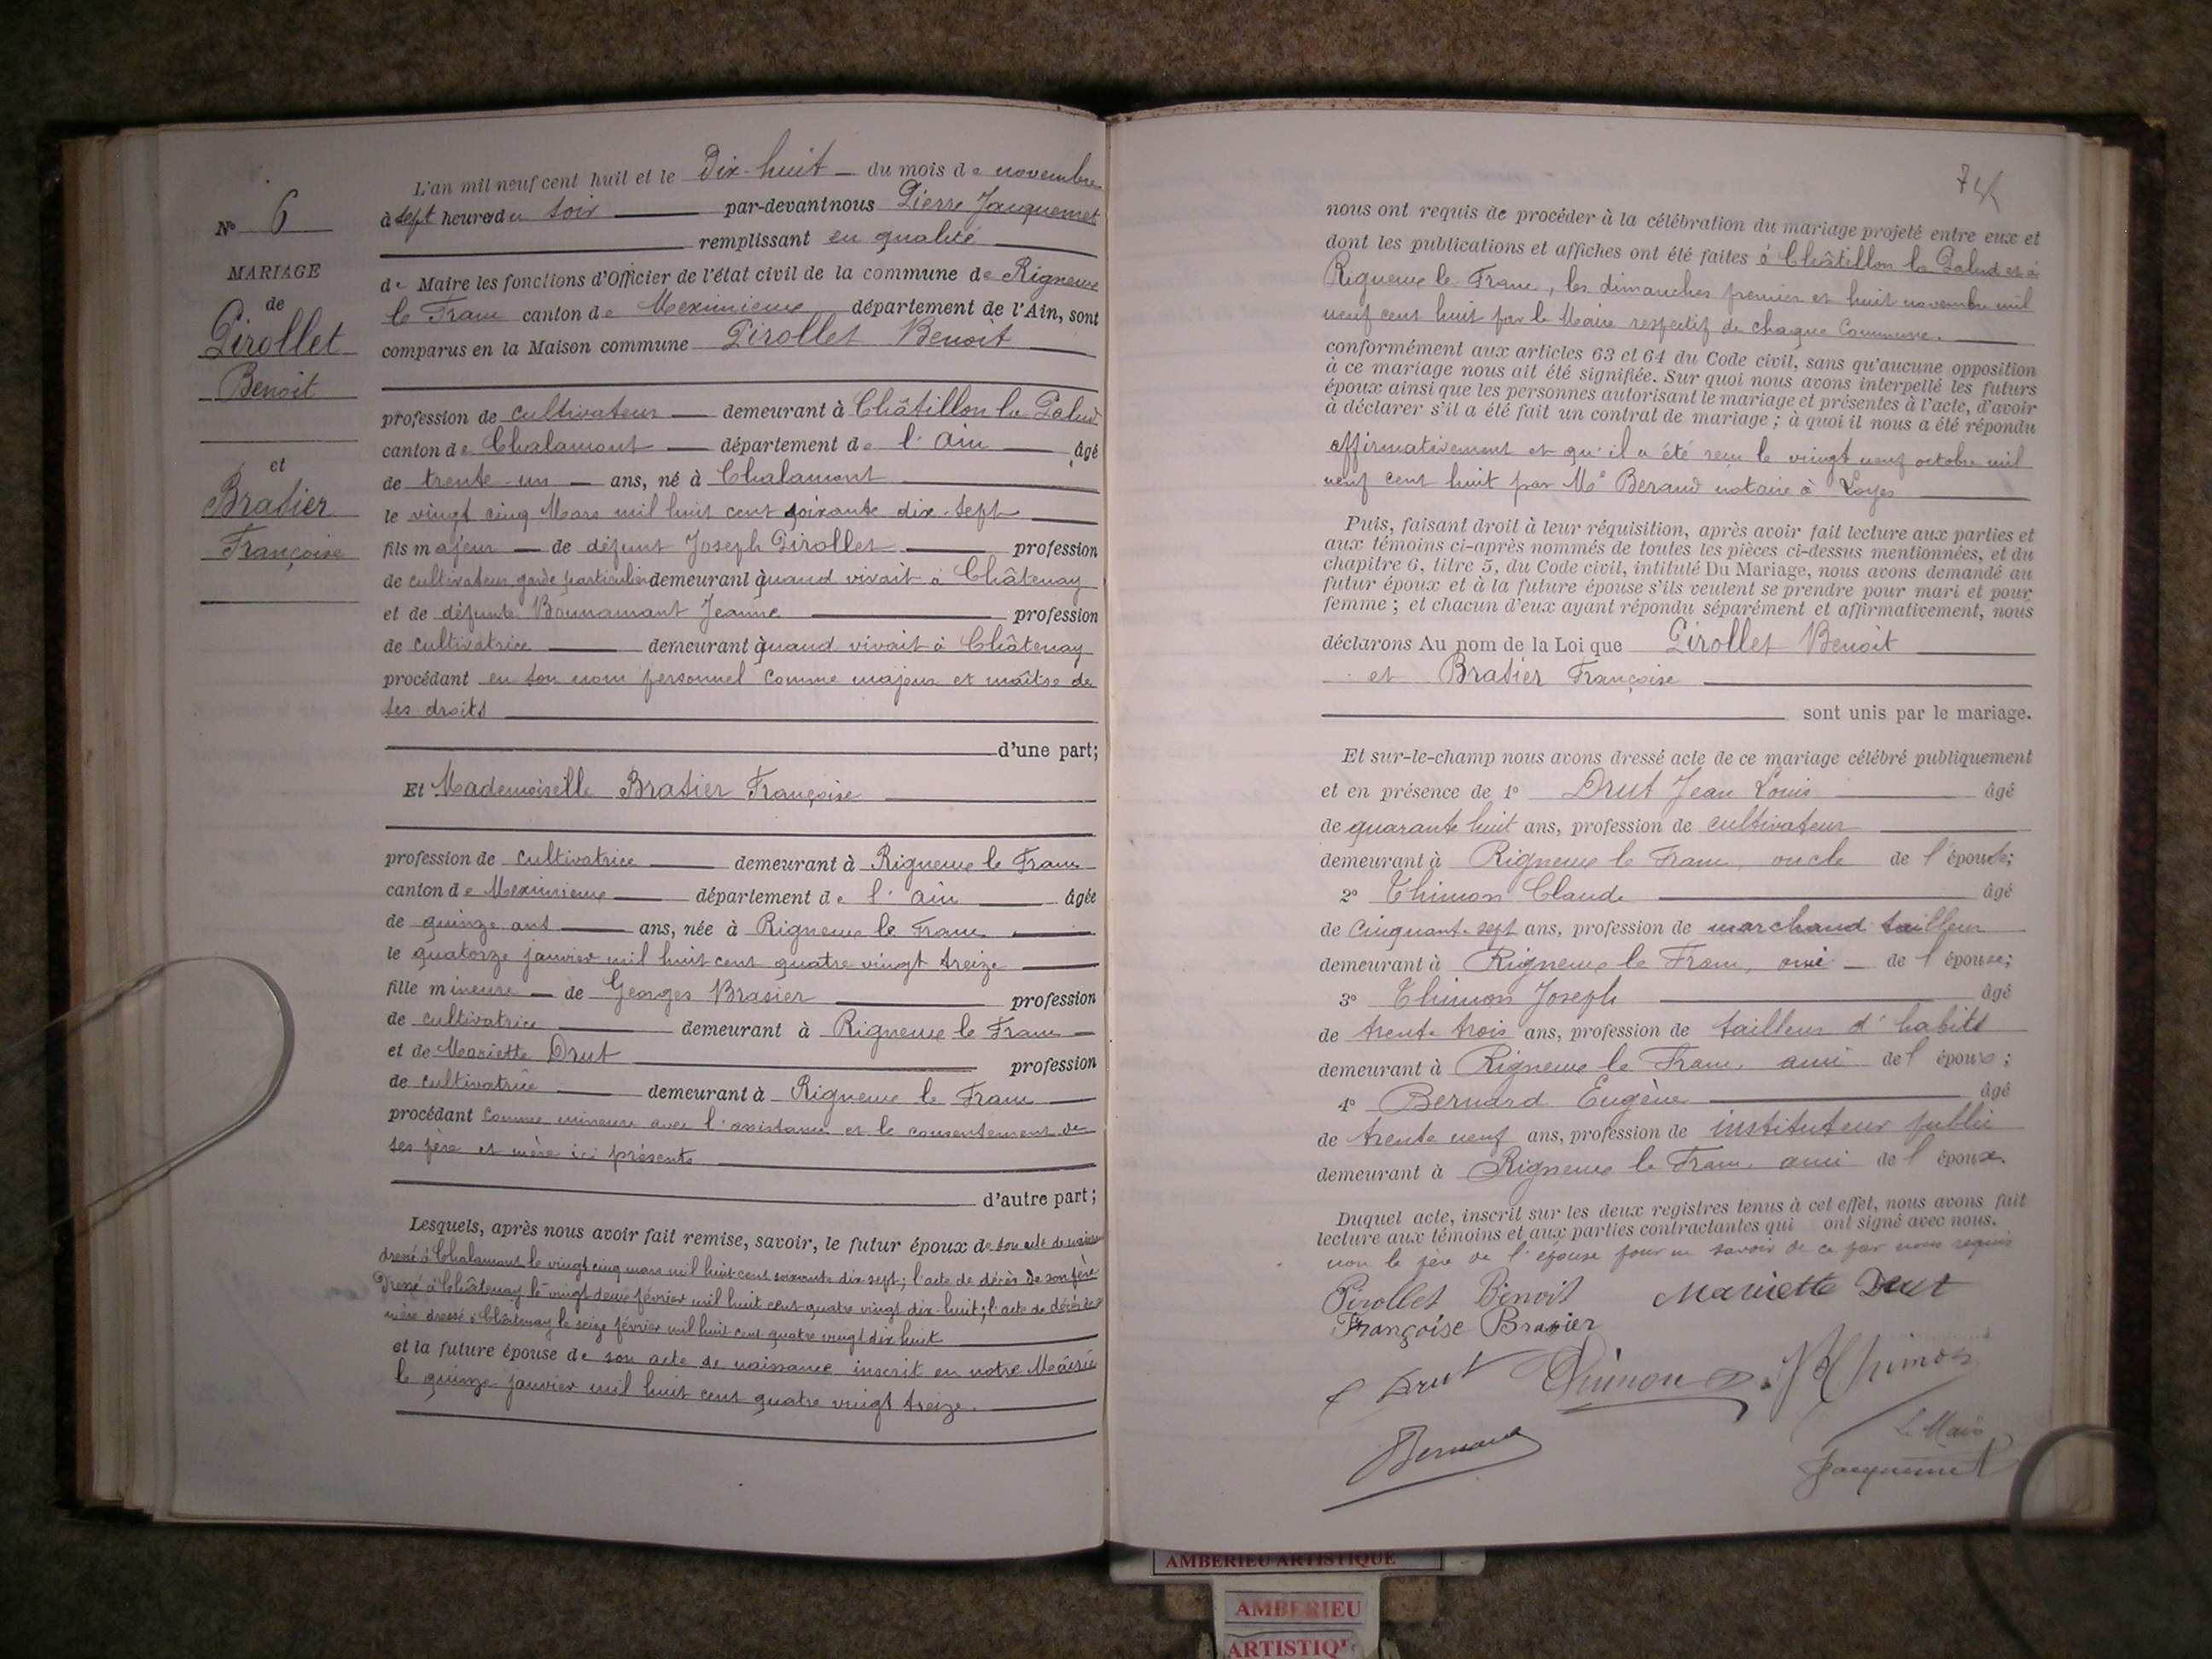 L'an mil neuf cent huit et le Dix-huit du mois de novembre
à sept heures du soir par-devant nous Pierre Jacquemet
remplissant en qualité
de Maire les fonctions d'Officier de l'état civil de la commune de Rigneux
le Franc canton de Meximieux département de l'Ain, sont
comparus en la Maison commune Pirollet Benoit
N° 6
MARIAGE
de
Pirollet
Benoit
et
Brasier
Françoise
profession de cultivateur demeurant à Châtillon la Palud
canton de Chalamont département de l'Ain âgé
de trente-un ans, né à Chalamont
le vingt cinq Mars mil huit cent soixante dix-sept
fils majeur de défunt Joseph Pirollet profession
de cultivateur garde particulier demeurant à quand vivait à Châtenay
et de défunte Bonnamant Jeanne profession
de cultivatrice demeurant à quand vivait à Châtenay
procédant en son nom personnel comme majeur et maître de
ses droits
d'une part;
Et Mademoiselle Brasier Françoise
profession de cultivatrice demeurant à Rigneux le Franc
canton de Meximieux département de l'Ain âgée
de quinze ans ans, née à Rigneux le Franc
le quatorze janvier mil huit cent quatre vingt treize
fille mineure de Georges Brasier profession
de cultivatrice demeurant à Rigneux le Franc
et de Mariette Drut profession
de cultivatrice demeurant à Rigneux le Franc
procédant comme mineure avec l'assistance et le consentement de
ses père et mère ici présents
d'autre part;
Lesquels, après nous avoir fait remise, savoir, le futur époux de son acte de
dressé à Chalamont le vingt cinq mars mil huit cent soixante dix sept; l'acte de décès de son père
Dressé à Châtenay le vingt deux février mil huit cent quatre vingt dix-huit; l'acte de décès de
mère dressé à Châtenay le seize février mil huit cent quatre vingt dix huit
et la future épouse de son acte de naissance inscrit en notre Mairie
le quinze janvier mil huit cent quatre vingt treize.
nous ont requis de procéder à la célébration du mariage projeté entre eux et
dont les publications et affiches ont été faites à Châtillon la Palud et à
Rigneux le Franc, les dimanches premier et huit novembre mil
neuf cent huit par le Maire respectif de chaque Commune.
conformément aux articles 63 et 64 du Code civil, sans qu'aucune opposition
à ce mariage nous ait été signifiée. Sur quoi nous avons interpellé les futurs
époux ainsi que les personnes autorisant le mariage et présentes à l'acte, d'avoir
à déclarer s'il a été fait un contrat de mariage; à quoi il nous a été répondu
affirmativement et qu'il a été reçu le vingt neuf octobre mil
neuf cent huit par Me Beraud notaire à Loyes
Puis, faisant droit à leur réquisition, après avoir fait lecture aux parties et
aux témoins ci-après nommés de toutes les pièces ci-dessus mentionnées, et du
chapitre 6, titre 5, du Code civil, intitulé Du Mariage, nous avons demandé au
futur époux et à la future épouse s'ils veulent se prendre pour mari et pour
femme; et chacun d'eux ayant répondu séparément et affirmativement, nous
déclarons Au nom de la Loi que Pirollet Benoit
et Brasier Françoise
sont unis par le mariage.
Et sur-le-champ nous avons dressé acte de ce mariage célébré publiquement
et en présence de 1° Drut Jean Louis âgé
de quarante huit ans, profession de cultivateur
demeurant à Rigneux le Franc, oncle de l'épouse;
2° Thimon Claude âgé
de cinquante sept ans, profession de marchand tailleur
demeurant à Rigneux le Franc, ami de l'épouse;
3° Thimon Joseph âgé
de trente trois ans, profession de tailleur d'habits
demeurant à Rigneux le Franc, ami de l'époux;
4° Bernard Eugène âgé
de trente neuf ans, profession de instituteur public
demeurant à Rigneux le Franc, ami de l'époux.
Duquel acte, inscrit sur les deux registres tenus à cet effet, nous avons fait
lecture aux témoins et aux parties contractantes qui ont signé avec nous.
non le père de l'épouse pour ne savoir de ce par nous requis
Pirollet Benoit Mariette Drut
Françoise Brasier
Drut Thimon Thimon
Bernard
Le Maire
Jacquemet
AMBERIEU ARTISTIQUE
AMBERIEU
ARTISTIQ